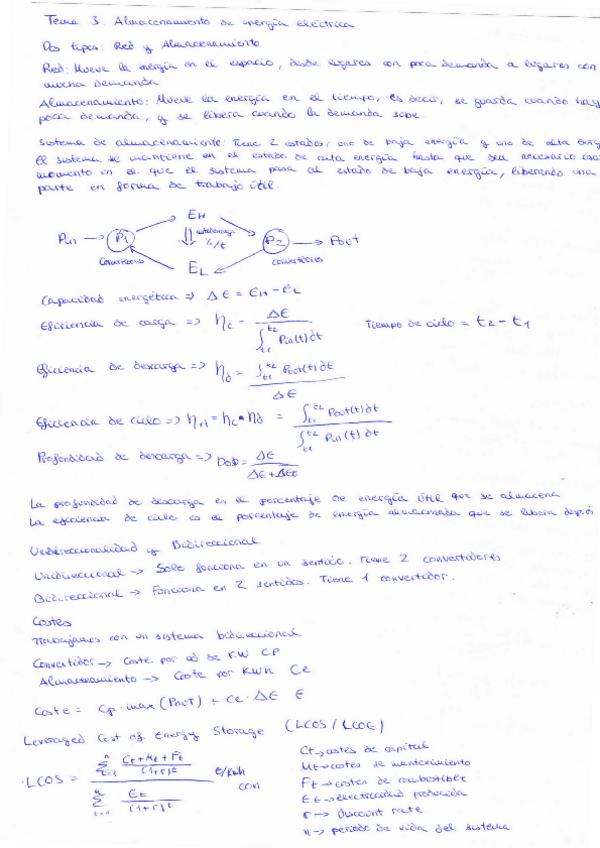 Tema 3. Almacenamiento de energía eléctrica
Dos tipos: Red y Almacenamiento
Red: Mueve la energía en el espacio, desde lugares con poca demanda a lugares con
mucha demanda
Almacenamiento: Mueve la energía en el tiempo, es decir, se guarda cuando hay
poca demanda, y se libera cuando la demanda sube.
Sistema de almacenamiento: Tiene 2 estados: uno de baja energía y uno de alta energ
El sistema se mantiene en el estado de alta energía hasta que sea necesario
momento en el que el sistema pasa al estado de baja energía, liberando una
parte en forma de trabajo útil.
EH
Pin → P1 autodescarga %/t P2 → Pout
Convertidores Convertidores
EL
Capacidad energética => ΔE = EH - EL
Eficiencia de carga => ηc = ΔE / ∫t1^t2 Pin(t)dt Tiempo de ciclo = t2 - t1
Eficiencia de descarga => ηd = ∫t1^t2 Pout(t)dt / ΔE
Eficiencia de ciclo => ηrt = ηc * ηd = ∫t1^t2 Pout(t)dt / ∫t1^t2 Pin(t)dt
Profundidad de descarga => DoD = ΔE / ΔE + ΔE0
La profundidad de descarga es el porcentaje de energía útil que se almacena
La eficiencia de ciclo es el porcentaje de energía almacenada que se libera
Unidireccionalidad y Bidireccional
Unidireccional → Solo funciona en un sentido. Tiene 2 convertidores
Bidireccional → Funciona en 2 sentidos. Tiene 1 convertidor.
Costes
Trabajamos con un sistema bidireccional
Convertidor → Coste por ud de KW CP
Almacenamiento → Coste por KWh Ce
Coste = Cp · max (Pout) + Ce · ΔE €
Leveraged Cost of Energy Storage (LCOS / LCOE)
LCOS = Σt=1^n Ct + Mt + Ft / (1+r)^t / Σt=1^n Et / (1+r)^t €/kWh con
Ct → costes de capital
Mt → costes de mantenimiento
Ft → costes de combustible
Et → electricidad producida
r → Discount rate
n → periodo de vida del sistema